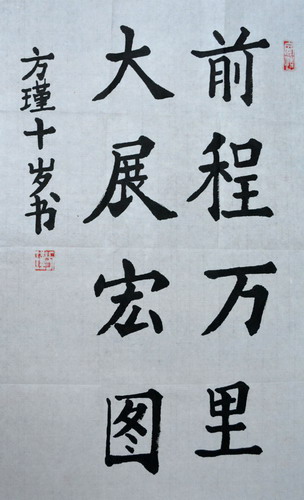 前程万里
大展宏图
方瑾十岁书